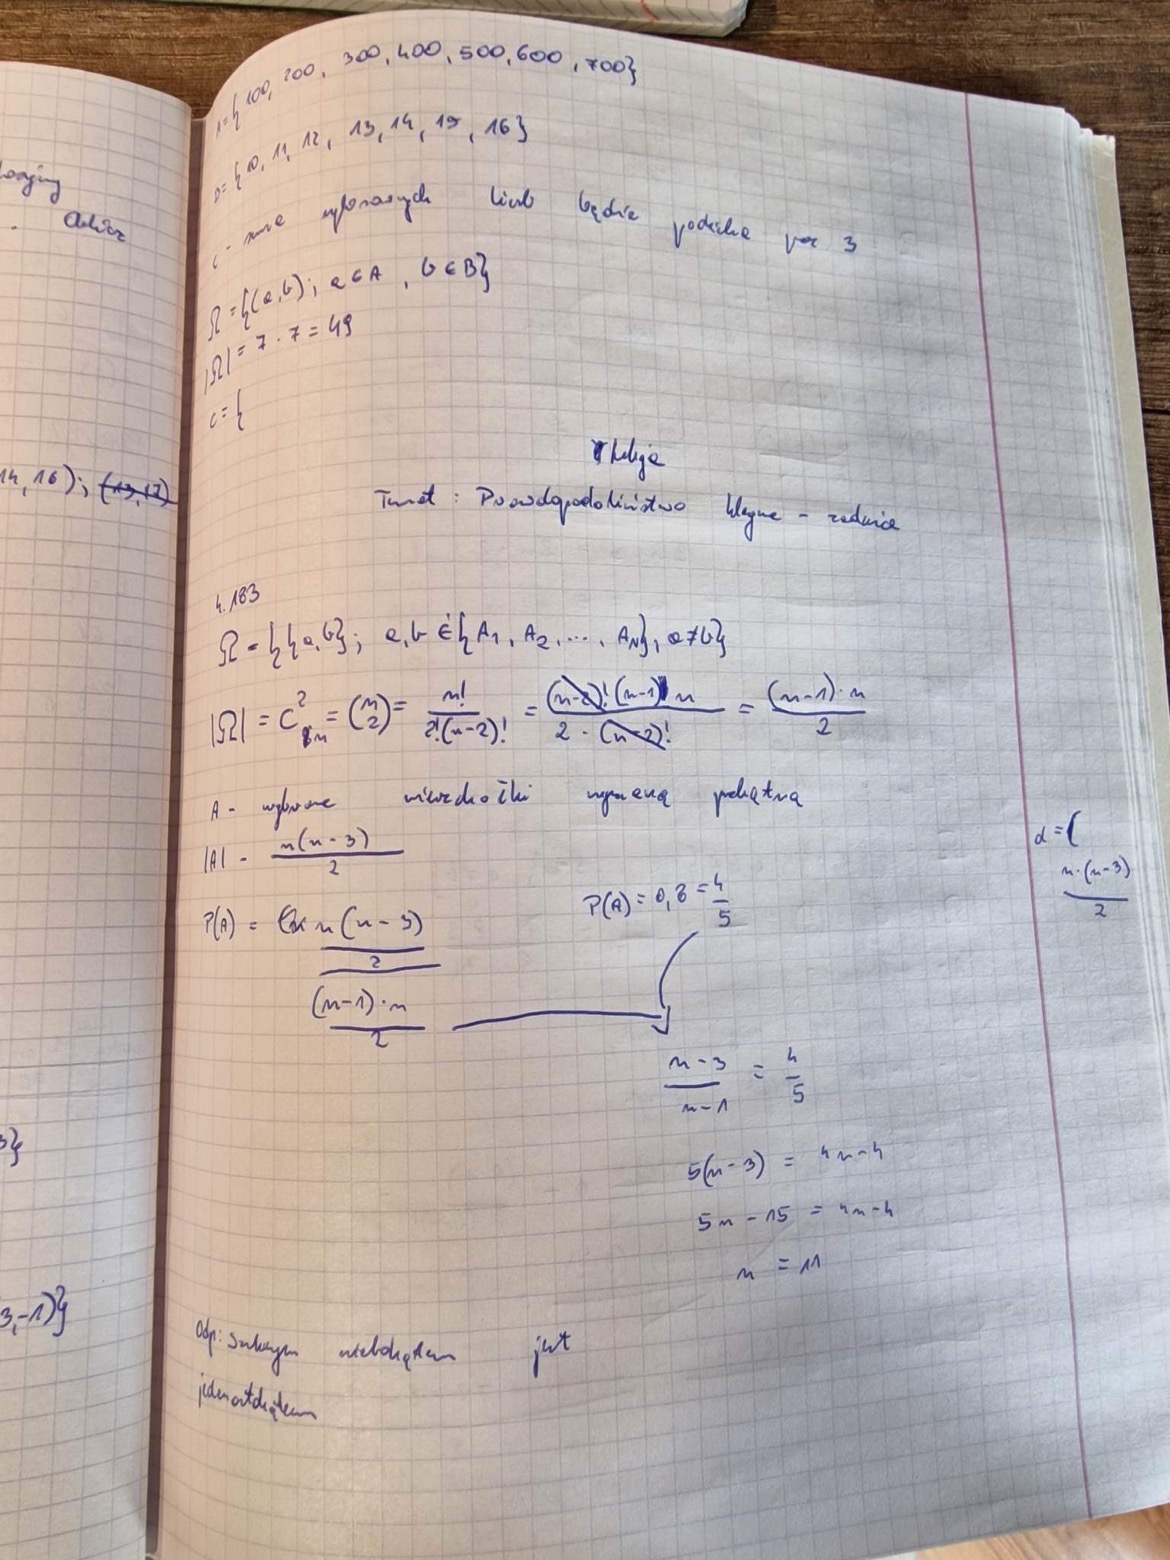 14, 16); (13,17)
3}
3,-1)}
A={100, 200, 300, 400, 500, 600, 700}
B={10, 11, 12, 13, 14, 15, 16}
C - suma wybranych liczb będzie podzielna przez 3
Ω={(a,b); a∈A, b∈B}
|Ω|=7·7=49
C={
Lekcja
Temat: Prawdopodobieństwo klasyczne - zadania
4.183
Ω={{a,b}; a,b∈{A₁, A₂, ..., Aₙ}, a≠b}
|Ω| = C²ₙ = (n 2) = n!/2!(n-2)! = (n-2)!(n-1)n/2·(n-2)! = (n-1)·n/2
A - wybrane wierzchołki wyznaczą przekątną
|A| - n(n-3)/2
d=(
n·(n-3)/2
P(A) = n(n-3)/2 / (n-1)·n/2
P(A)=0,8=4/5
n-3/n-1 = 4/5
5(n-3) = 4n-4
5n-15 = 4n-4
n = 11
Odp: Szukanym wielokątem jest
jedenastokątem